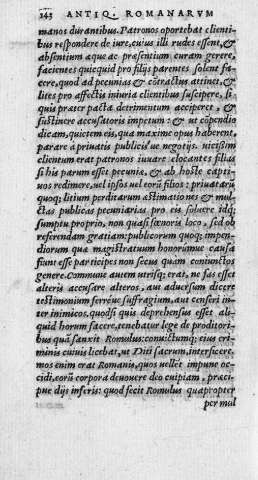 143 ANTIQ. ROMANARVM
manos durantibus. Patronos oportebat clienti-
bus respondere de iure, cuius illi rudes essent, &
absentium aquè ac præsentium curam gerere,
facientes quicquid pro filijs parentes solent fa-
cere, quod ad pecunias & cōtractus attinet, &
lites pro affectis iniuria clientibus suscipere, si
quis præter pacta detrimentum acciperet, &
sustinere accusatoris impetum: & ut compendio
dicam, quietem eis, qua maxime opus haberent,
parare à priuatis publicisue negotijs. uicissim
clientum erat patronos iuuare elocantes filias
si his parum esset pecuniæ, & ab hoste capti-
uos redimere, uel ipsos uel eorū filios: priuatarū
quoq; litium perditarum æstimationes & mul-
ctas publicas pecuniarias pro eis soluere idq;
sumptu proprio, non quasi fœnoris loco, sed ad
referendam gratiam: publicorum quoq; impen-
diorum quæ magistratuum honorumue causa
fiunt esse participes non secus quàm coniunctos
genere. Commune autem utrisq; erat, ne fas esset
alteris accusare alteros, aut aduersum dicere
testimonium ferréue suffragium, aut censeri in-
ter inimicos. quodsi quis deprehensus esset ali-
quid horum facere, tenebatur lege de proditori-
bus quā sanxit Romulus: conuictumq; eius cri-
minis cuiuis licebat, ut Diti sacrum, interficere.
mos enim erat Romanis, quos uellēt impune oc-
cidi, eorū corpora deuouere deo cuipiam, præci-
pue dijs inferis: quod fecit Romulus quapropter
per mul